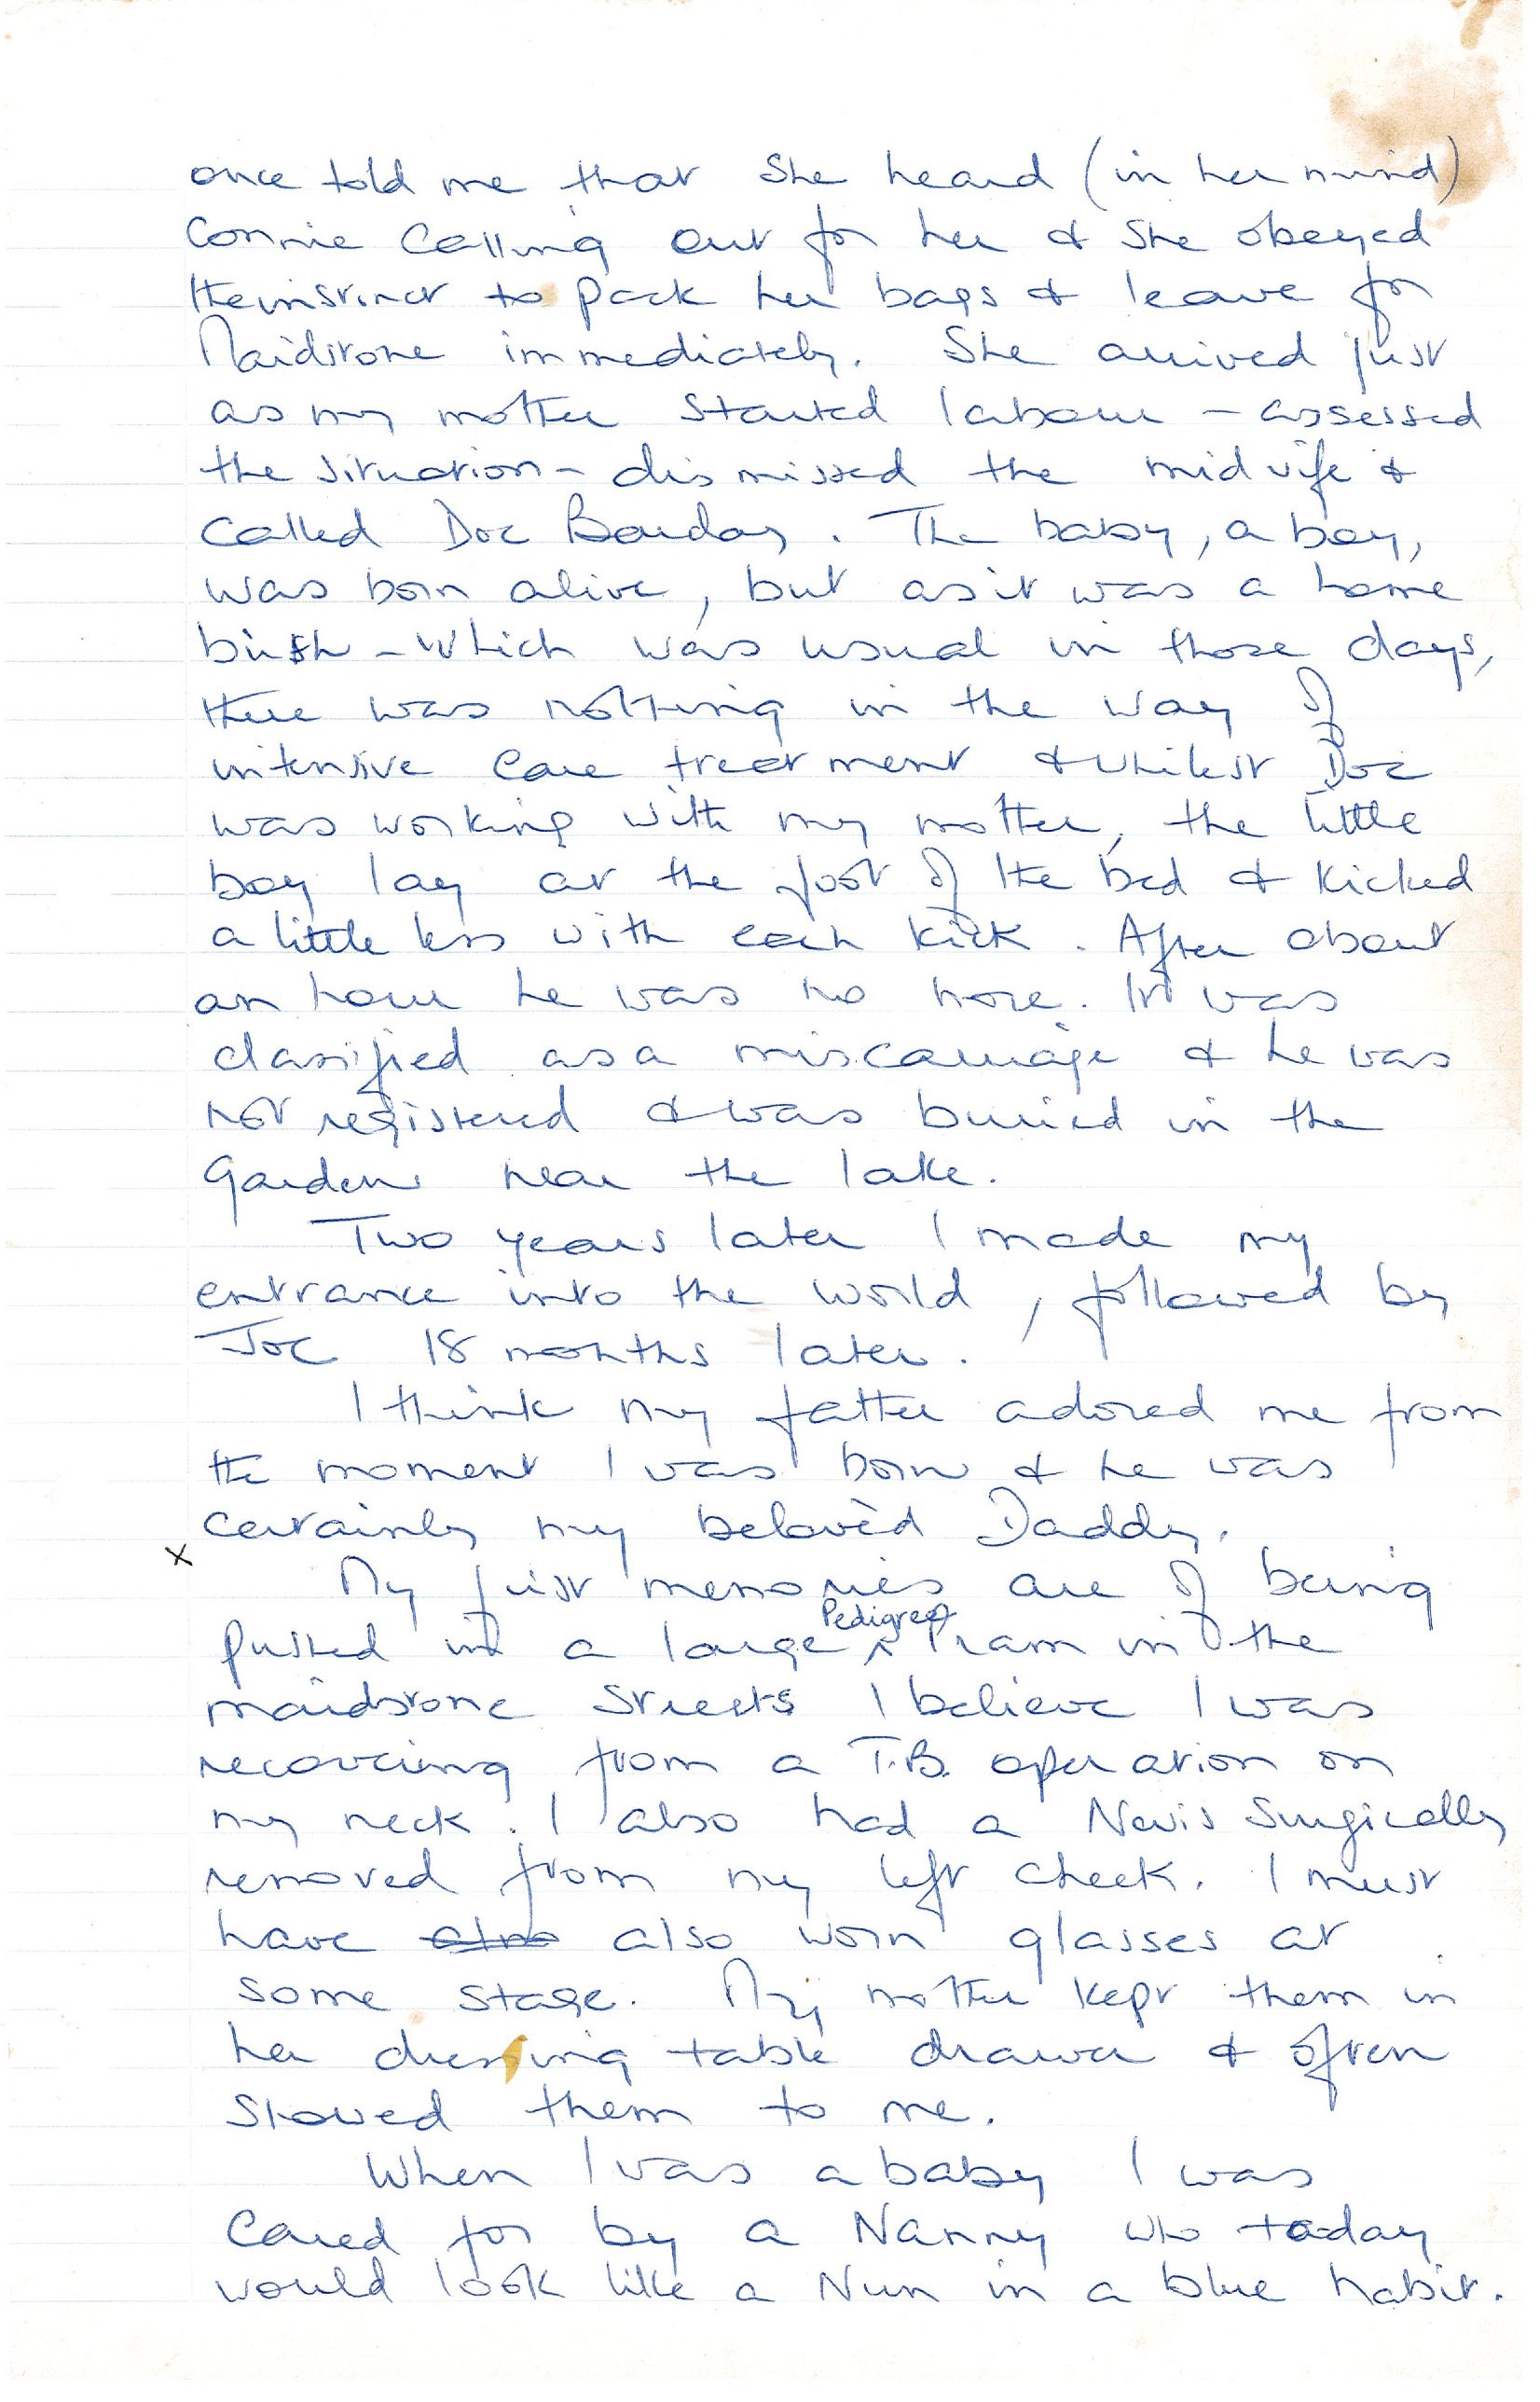 once told me that she heard (in her mind)
Connie Calling out for her & she obeyed
the instinct to pack her bags & leave for
Maidstone immediately. She arrived just
as my mother started labour - assessed
the situation - dismissed the midwife &
called Doc . The baby, a boy,
was born alive, but as it was a home
birth - which was usual in those days,
there was nothing in the way of
intensive care treatment & whilest Doc
was working with my mother, the little
boy lay at the foot of the bed & kicked
a little less with each kick. After about
an hour he was no more. It was
classified as a miscarriage & he was
not registered & was buried in the
Gardens near the lake.
Two years later I made my
entrance into the world, followed by
Joc 18 months later.
I think my father adored me from
the moment I was born & he was
certainly my beloved Daddy.
x
My first memories are of being
Pedigree
pushed in a large ^ Pram in the
maidstone streets I believe I was
recovering from a T.B. operation on
my neck. I also had a Nevis Surgically
removed from my left cheek. I must
have also also worn glasses at
some stage. My mother kept them in
her dressing table drawer & often
showed them to me.
When I was a baby I was
Cared for by a Nanny who today
would look like a Nun in a blue habit.